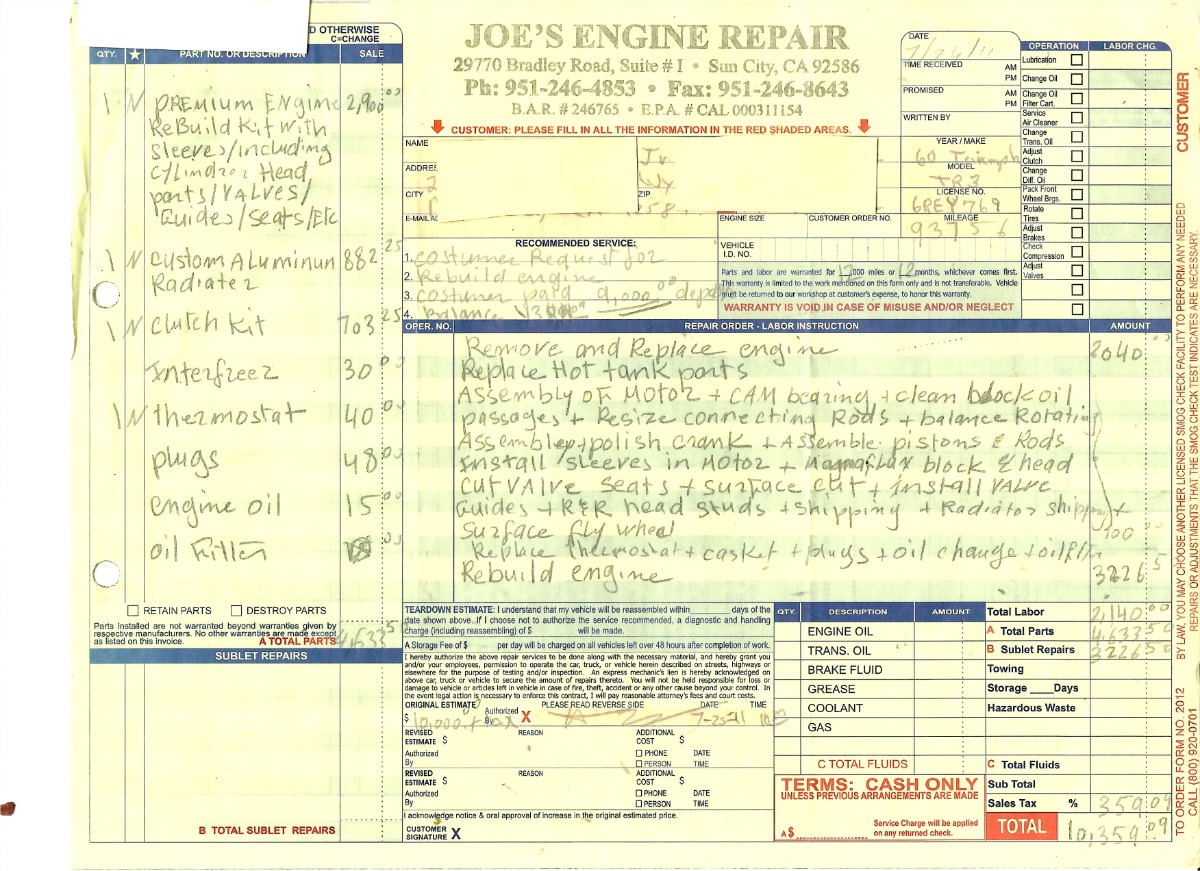 D OTHERWISE
C=CHANGE
QTY. ★ PART NO. OR DESCRIPTION SALE
1 N PREMIUM ENGINE 2,900.00
ReBuild Kit with
sleeves/including
Cylindrer Head
parts/VALVES/
Guides/Seats/Etc
1 N Custom Aluminun 882.25
Radiater
1 N Clutch Kit 703.25
Interfreez 30.00
1 N thermostat 40.00
plugs 48.00
engine oil 15.00
oil Filter
RETAIN PARTS DESTROY PARTS
Parts installed are not warranted beyond warranties given by
respective manufacturers. No other warranties are made except
as listed on this invoice. A TOTAL PARTS 4,633.50
SUBLET REPAIRS
B TOTAL SUBLET REPAIRS
JOE'S ENGINE REPAIR
29770 Bradley Road, Suite # I • Sun City, CA 92586
Ph: 951-246-4853 • Fax: 951-246-8643
B.A.R. # 246765 • E.P.A. # CAL 000311154
CUSTOMER: PLEASE FILL IN ALL THE INFORMATION IN THE RED SHADED AREAS.
NAME
ADDRES
CITY
ZIP
E-MAIL AD
ENGINE SIZE CUSTOMER ORDER NO.
DATE
7/26/11
TIME RECEIVED AM PM
PROMISED AM PM
WRITTEN BY
YEAR / MAKE
60 Triumph
MODEL
TR3
LICENSE NO.
6PEY769
MILEAGE
93756
OPERATION LABOR CHG.
Lubrication
Change Oil
Change Oil Filter Cart.
Service Air Cleaner
Change Trans. Oil
Adjust Clutch
Change Diff. Oil
Pack Front Wheel Brgs.
Rotate Tires
Adjust Brakes
Check Compression
Adjust Valves
RECOMMENDED SERVICE:
1. Costumer Request for
2. Rebuild engine
3. Costumer paid 9,000.00
4. Balance
VEHICLE I.D. NO.
Parts and labor are warranted for 12,000 miles or 12 months, whichever comes first.
This warranty is limited to the work mentioned on this form only and is not transferable. Vehicle
must be returned to our workshop at customer's expense, to honor this warranty.
WARRANTY IS VOID IN CASE OF MISUSE AND/OR NEGLECT
OPER. NO. REPAIR ORDER - LABOR INSTRUCTION AMOUNT
Remove and Replace engine 2040.00
Replace Hot tank parts
Assembly of Motor + CAM bearing + clean block oil
passages + Resize connecting Rods + balance Rotating
Assembley + polish crank + Assemble pistons & Rods
Install sleeves in Motor + Magnaflux block & head
Cut VALVE seats + surface cut + install VALVE
Guides + R&R head studs + shipping + Radiator shipping
Surface fly wheel 100.00
Replace thermostat + casket + plugs + oil change + oil filter
Rebuild engine 3226.5
TEARDOWN ESTIMATE: I understand that my vehicle will be reassembled within ______ days of the
date shown above. If I choose not to authorize the service recommended, a diagnostic and handling
charge (including reassembling) of $ will be made.
A Storage Fee of $ per day will be charged on all vehicles left over 48 hours after completion of work.
I hereby authorize the above repair services to be done along with the necessary material, and hereby grant you
and/or your employees, permission to operate the car, truck, or vehicle herein described on streets, highways or
elsewhere for the purpose of testing and/or inspection. An express mechanic's lien is hereby acknowledged on
above car, truck or vehicle to secure the amount of repairs thereto. You will not be held responsible for loss or
damage to vehicle or articles left in vehicle in case of fire, theft, accident or any other cause beyond your control. In
the event legal action is necessary to enforce this contract, I will pay reasonable attorney's fees and court costs.
ORIGINAL ESTIMATE PLEASE READ REVERSE SIDE DATE TIME
$ 10,000.+tax Authorized By X 7-25-11
REVISED ESTIMATE $ REASON ADDITIONAL COST $
Authorized By PHONE DATE
PERSON TIME
REVISED ESTIMATE $ REASON ADDITIONAL COST $
Authorized By PHONE DATE
PERSON TIME
I acknowledge notice & oral approval of increase in the original estimated price.
CUSTOMER SIGNATURE X
QTY. DESCRIPTION AMOUNT
ENGINE OIL
TRANS. OIL
BRAKE FLUID
GREASE
COOLANT
GAS
C TOTAL FLUIDS
TERMS: CASH ONLY
UNLESS PREVIOUS ARRANGEMENTS ARE MADE
A $ Service Charge will be applied
on any returned check.
Total Labor 2,140.00
A Total Parts 4,633.50
B Sublet Repairs 3226.50
Towing
Storage ____Days
Hazardous Waste
C Total Fluids
Sub Total
Sales Tax % 359.09
TOTAL 10,359.09
CUSTOMER
BY LAW, YOU MAY CHOOSE ANOTHER LICENSED SMOG CHECK FACILITY TO PERFORM ANY NEEDED
REPAIRS OR ADJUSTMENTS THAT THE SMOG CHECK TEST INDICATES ARE NECESSARY.
TO ORDER FORM NO. 2012
CALL (800) 920-0701